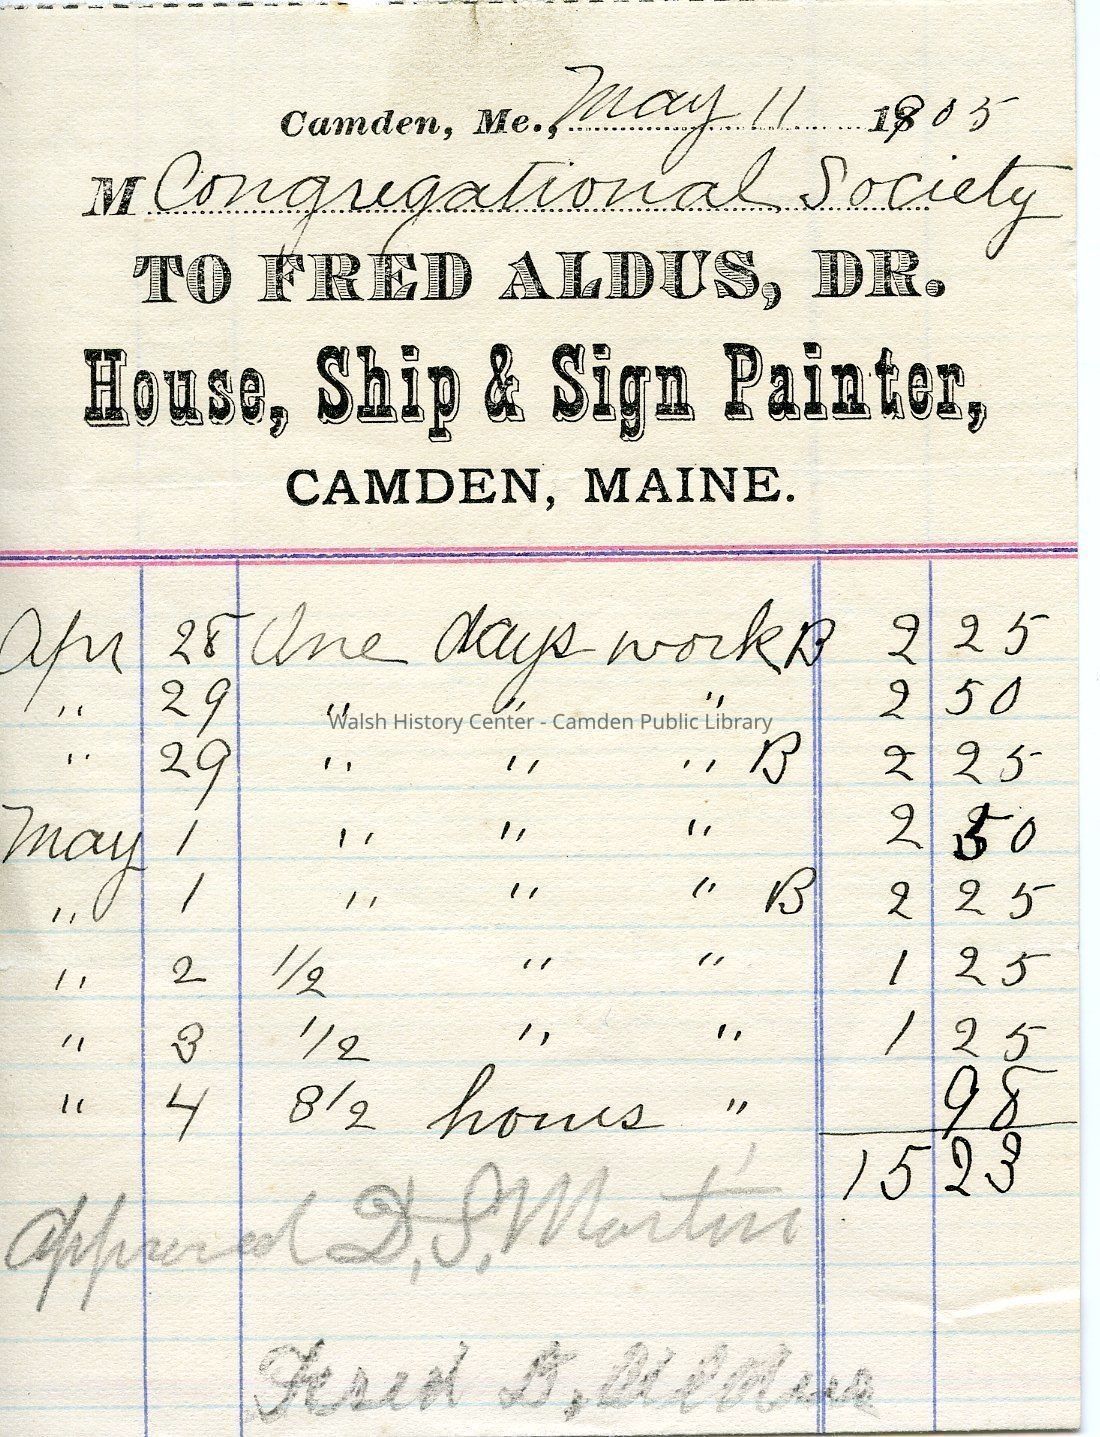 Camden, Me., May 11 1905
M Congregational Society
TO FRED ALDUS, DR.
House, Ship & Sign Painter,
CAMDEN, MAINE.
Apr 28 One days work B 2 25
" 29 " " " 2 50
Walsh History Center - Camden Public Library
" 29 " " " B 2 25
May 1 " " " 2 50
" 1 " " " B 2 25
" 2 1/2 " " 1 25
" 3 1/2 " " 1 25
" 4 8 1/2 hours " 98
15 23
Approved D. S. Martin
Fred